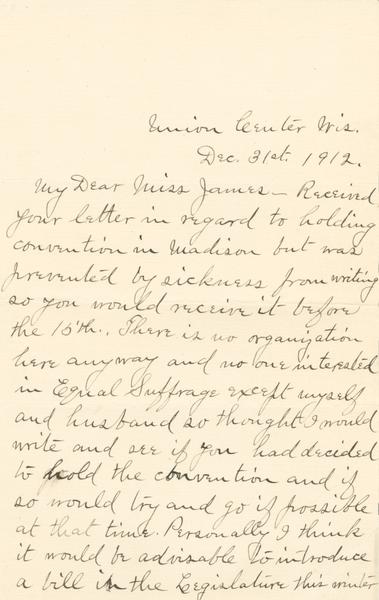 Union Center Wis.
Dec. 31st. 1912.
My Dear Miss James - Received
your letter in regard to holding
convention in Madison but was
prevented by sickness from writing
so you would receive it before
the 15th.. There is no organization
here anyway and no one interested
in Equal Suffrage except myself
and husband so thought I would
write and see if you had decided
to hold the convention and if
so would try and go if possible
at that time. Personally I think
it would be advisable to introduce
a bill in the Legislature this winter